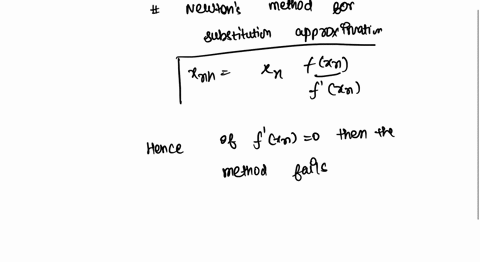 # Newton's method for
substitution approximation
xn+1 = xn f(xn)
f'(xn)
Hence of f'(xn)=0 then the
method fails